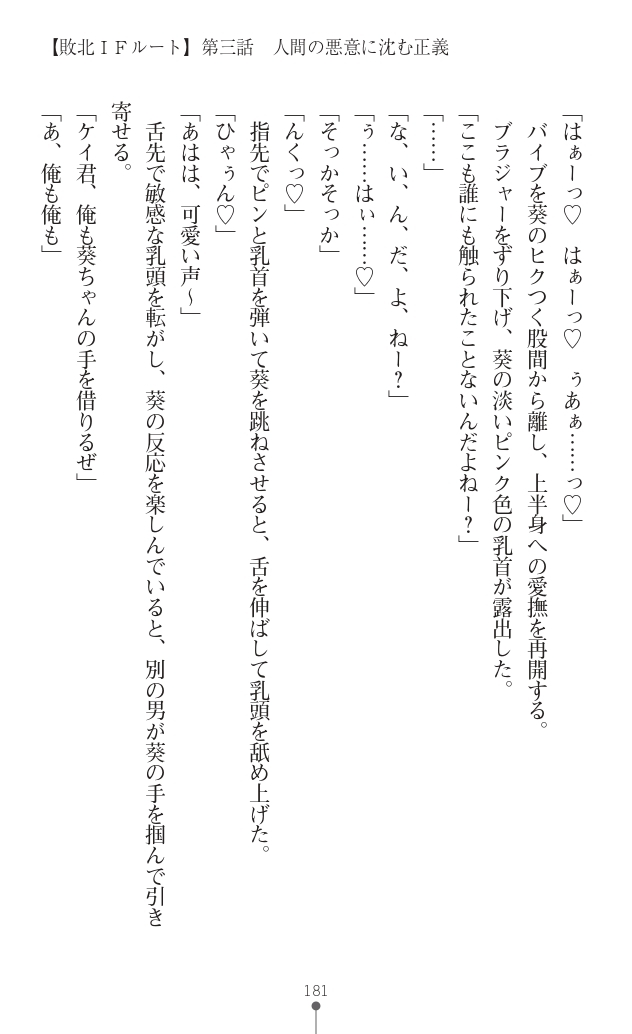 【敗北ＩＦルート】第三話　人間の悪意に沈む正義
「はぁーっ♡　はぁーっ♡　ぅあぁ……っ♡」
　バイブを葵のヒクつく股間から離し、上半身への愛撫を再開する。
　ブラジャーをずり下げ、葵の淡いピンク色の乳首が露出した。
「ここも誰にも触られたことないんだよねー？」
「……」
「な、い、ん、だ、よ、ねー？」
「ぅ……はぃ……♡」
「そっかそっか」
「んくっ♡」
　指先でピンと乳首を弾いて葵を跳ねさせると、舌を伸ばして乳頭を舐め上げた。
「ひゃぅん♡」
「あはは、可愛い声～」
　舌先で敏感な乳頭を転がし、葵の反応を楽しんでいると、別の男が葵の手を掴んで引き
寄せる。
「ケイ君、俺も葵ちゃんの手を借りるぜ」
「あ、俺も俺も」
181